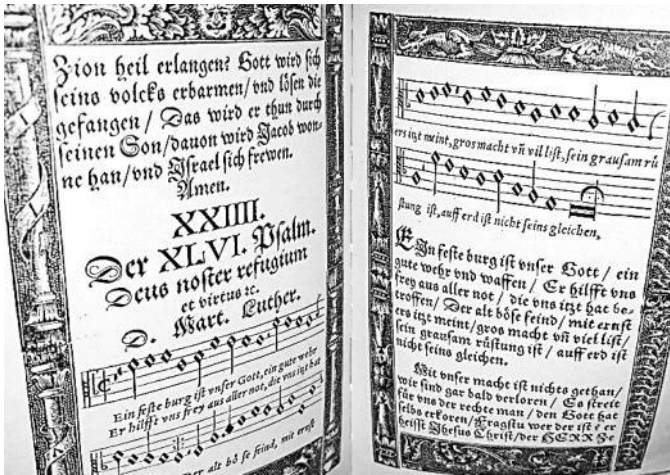 Zion heil erlangen? Gott wird sich
seins volcks erbarmen/vnd lösen die
gefangen / Das wird er thun durch
seinen Son/dauon wird Jacob won-
ne han/vnd Israel sich frewen.
Amen.
XXIIII.
Der XLVI. Psalm.
Deus noster refugium
et virtus ꝛc.
D. Mart. Luther.
Ein feste burg ist vnser Gott, ein gute wehr
Er hilfft vns frey aus aller not, die vns itzt hat
Der alt bö se feind, mit ernst
ers itzt meint, gros macht vñ vil list, sein grausam rü
stung ist, auff erd ist nicht seins gleichen,
EIn feste burg ist vnser Gott / ein
gute wehr vnd waffen / Er hilfft vns
frey aus aller not / die vns itzt hat be-
troffen / Der alt böse feind / mit ernst
ers itzt meint / gros macht vñ viel list /
sein grausam rüstung ist / auff erd ist
nicht seins gleichen.
Mit vnser macht ist nichts gethan /
wir sind gar bald verloren / Es streit
für vns der rechte man / den Gott hat
selbs erkoren / Fragstu wer der ist? er
heisst Jhesus Christ / der HERR Ze